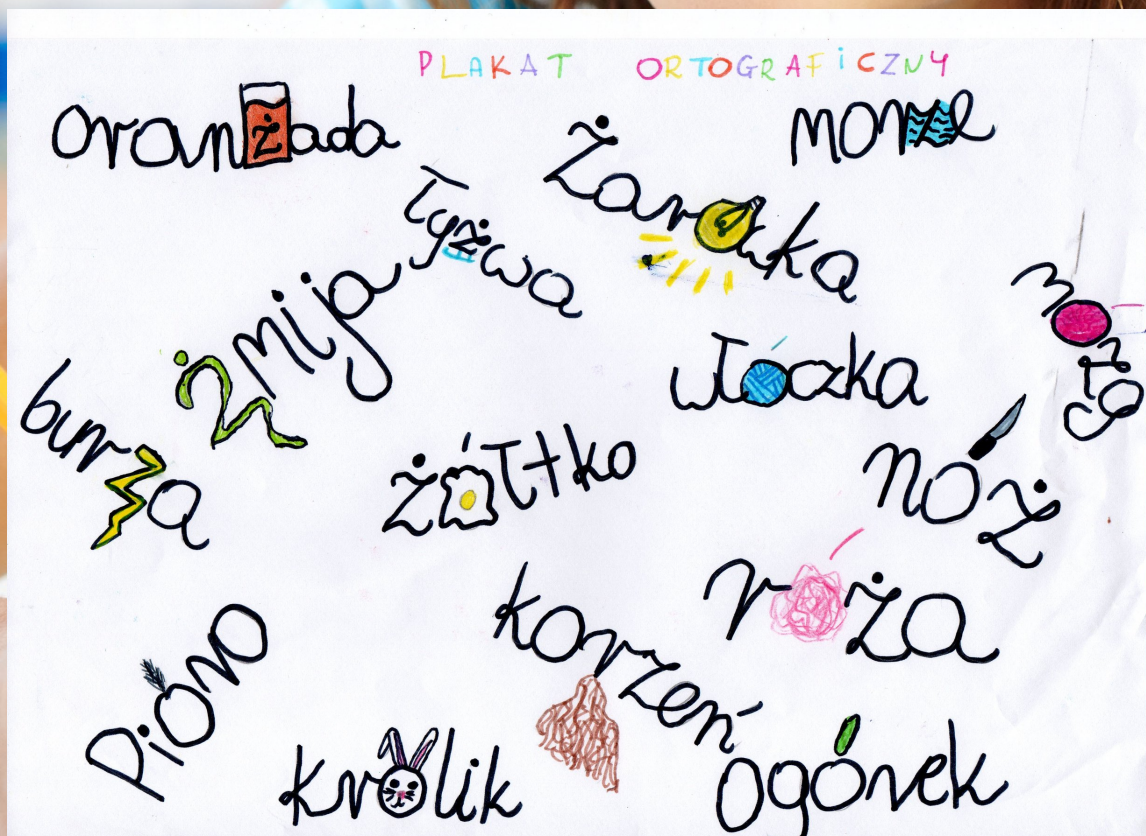 PLAKAT ORTOGRAFICZNY
oranżada
żarówka
morze
łyżwa
żmija
mózg
włóczka
burza
żółtko
nóż
róża
korzeń
pióro
królik
ogórek